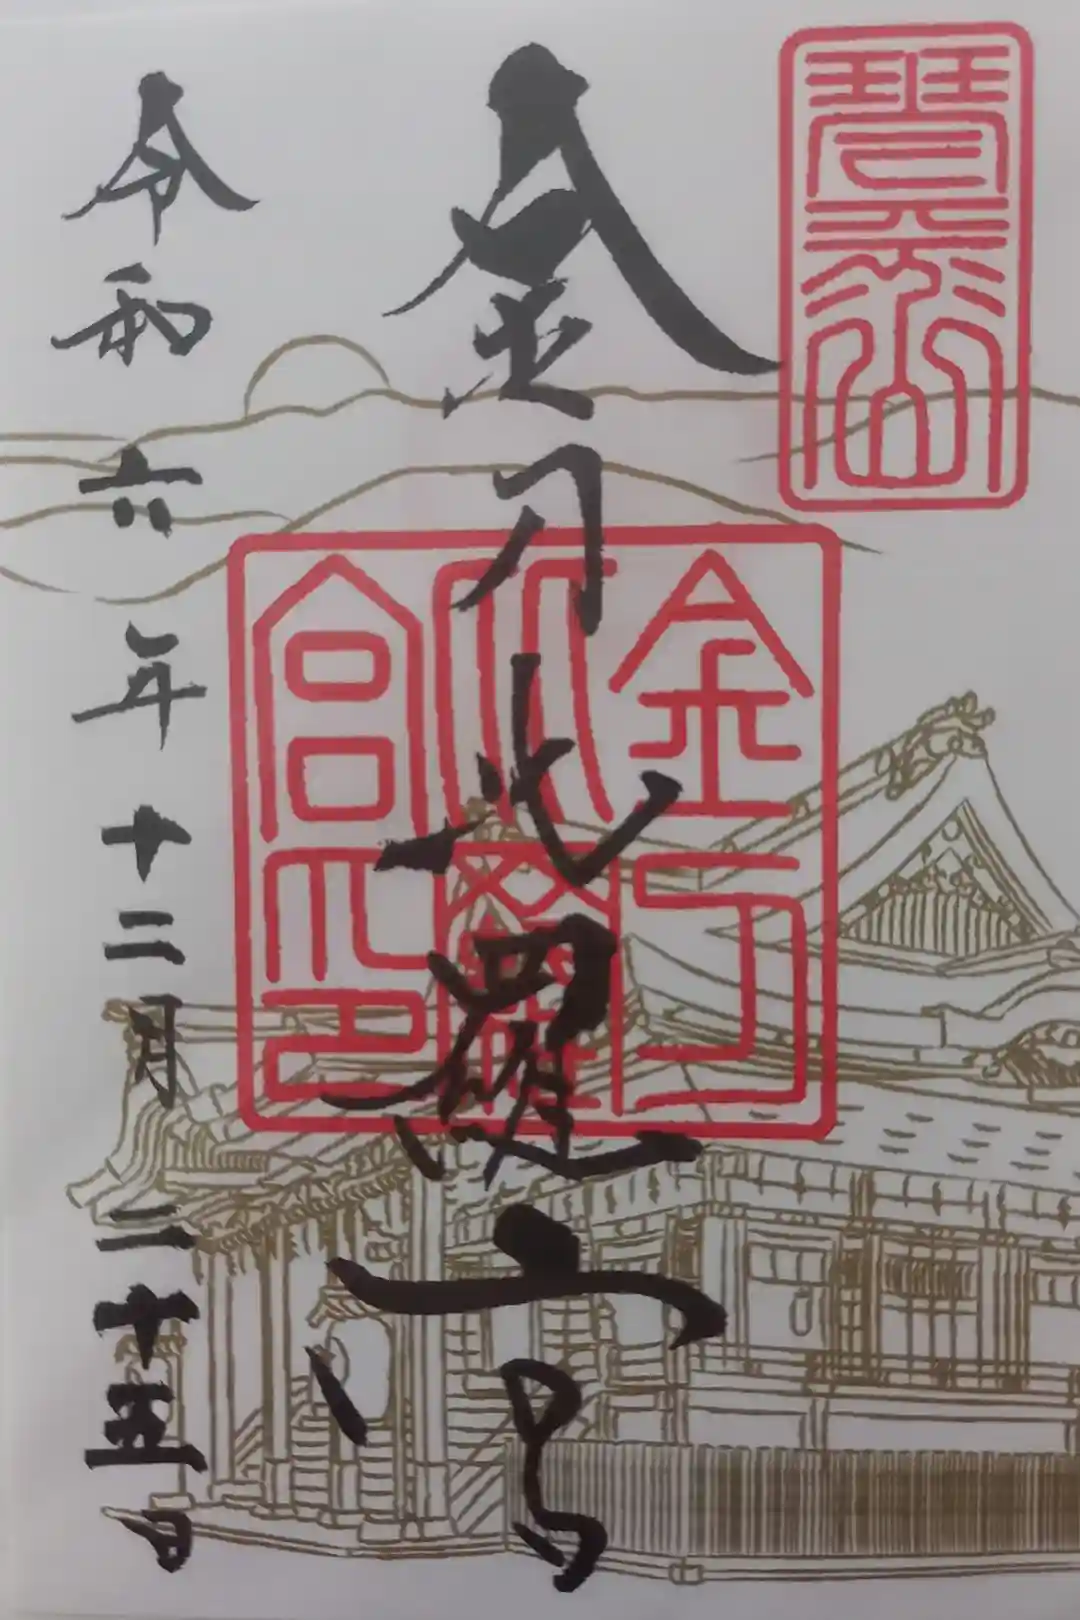 琴平山
金刀比羅宮
金刀
比羅
宮印
令和六年十二月二十五日